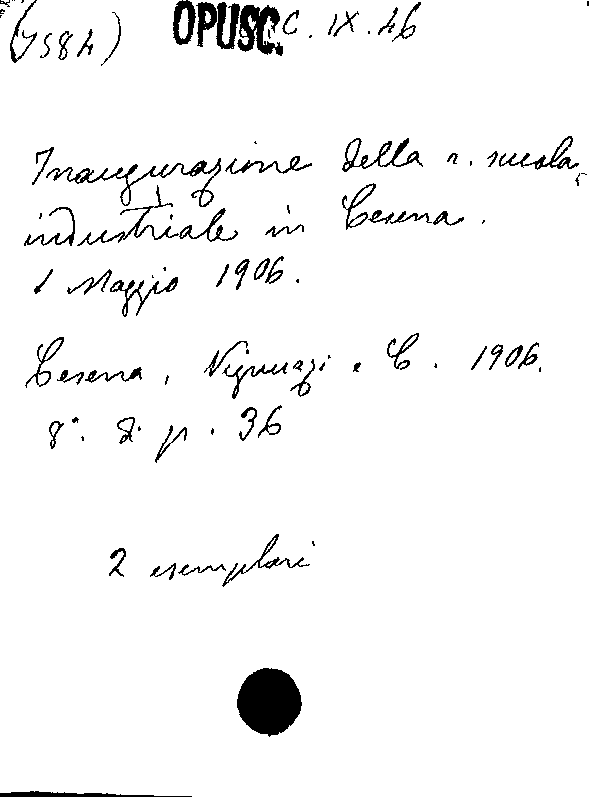 (7584) OPUSC. C. IX. 46
Inaugurazione della r. scuola
industriale in Cesena.
1 Maggio 1906.
Cesena, Vignuzzi e C. 1906.
8°. di p. 36
2 esemplari